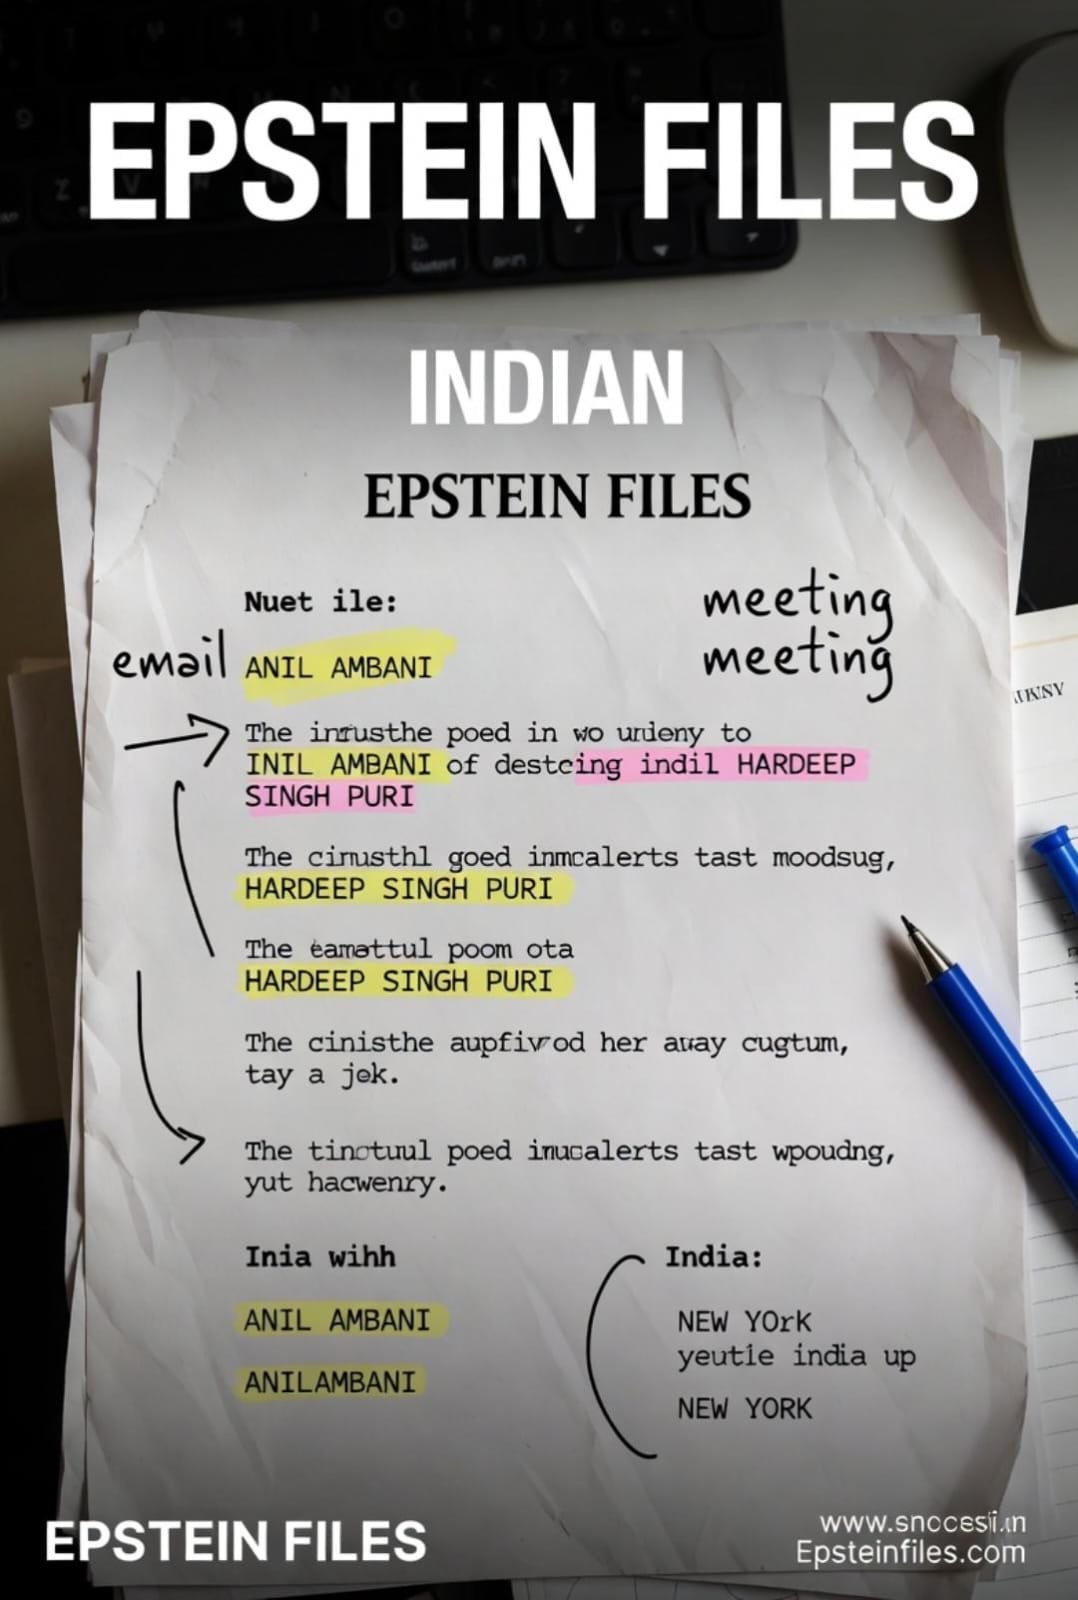 EPSTEIN FILES
INDIAN
EPSTEIN FILES
Nuet ile:
meeting
meeting
email ANIL AMBANI
The inrusthe poed in wo urdeny to
INIL AMBANI of destcing indil HARDEEP
SINGH PURI
The cirusthl goed inmcalerts tast moodsug,
HARDEEP SINGH PURI
The eamattul poom ota
HARDEEP SINGH PURI
The cinisthe aupfivrod her away cugtum,
tay a jek.
The tinctuul poed inucalerts tast wpoudng,
yut hacwenry.
Inia wihh
ANIL AMBANI
ANILAMBANI
India:
NEW YOrK
yeutie india up
NEW YORK
EPSTEIN FILES
www.snccesi.in
Epsteinfiles.com